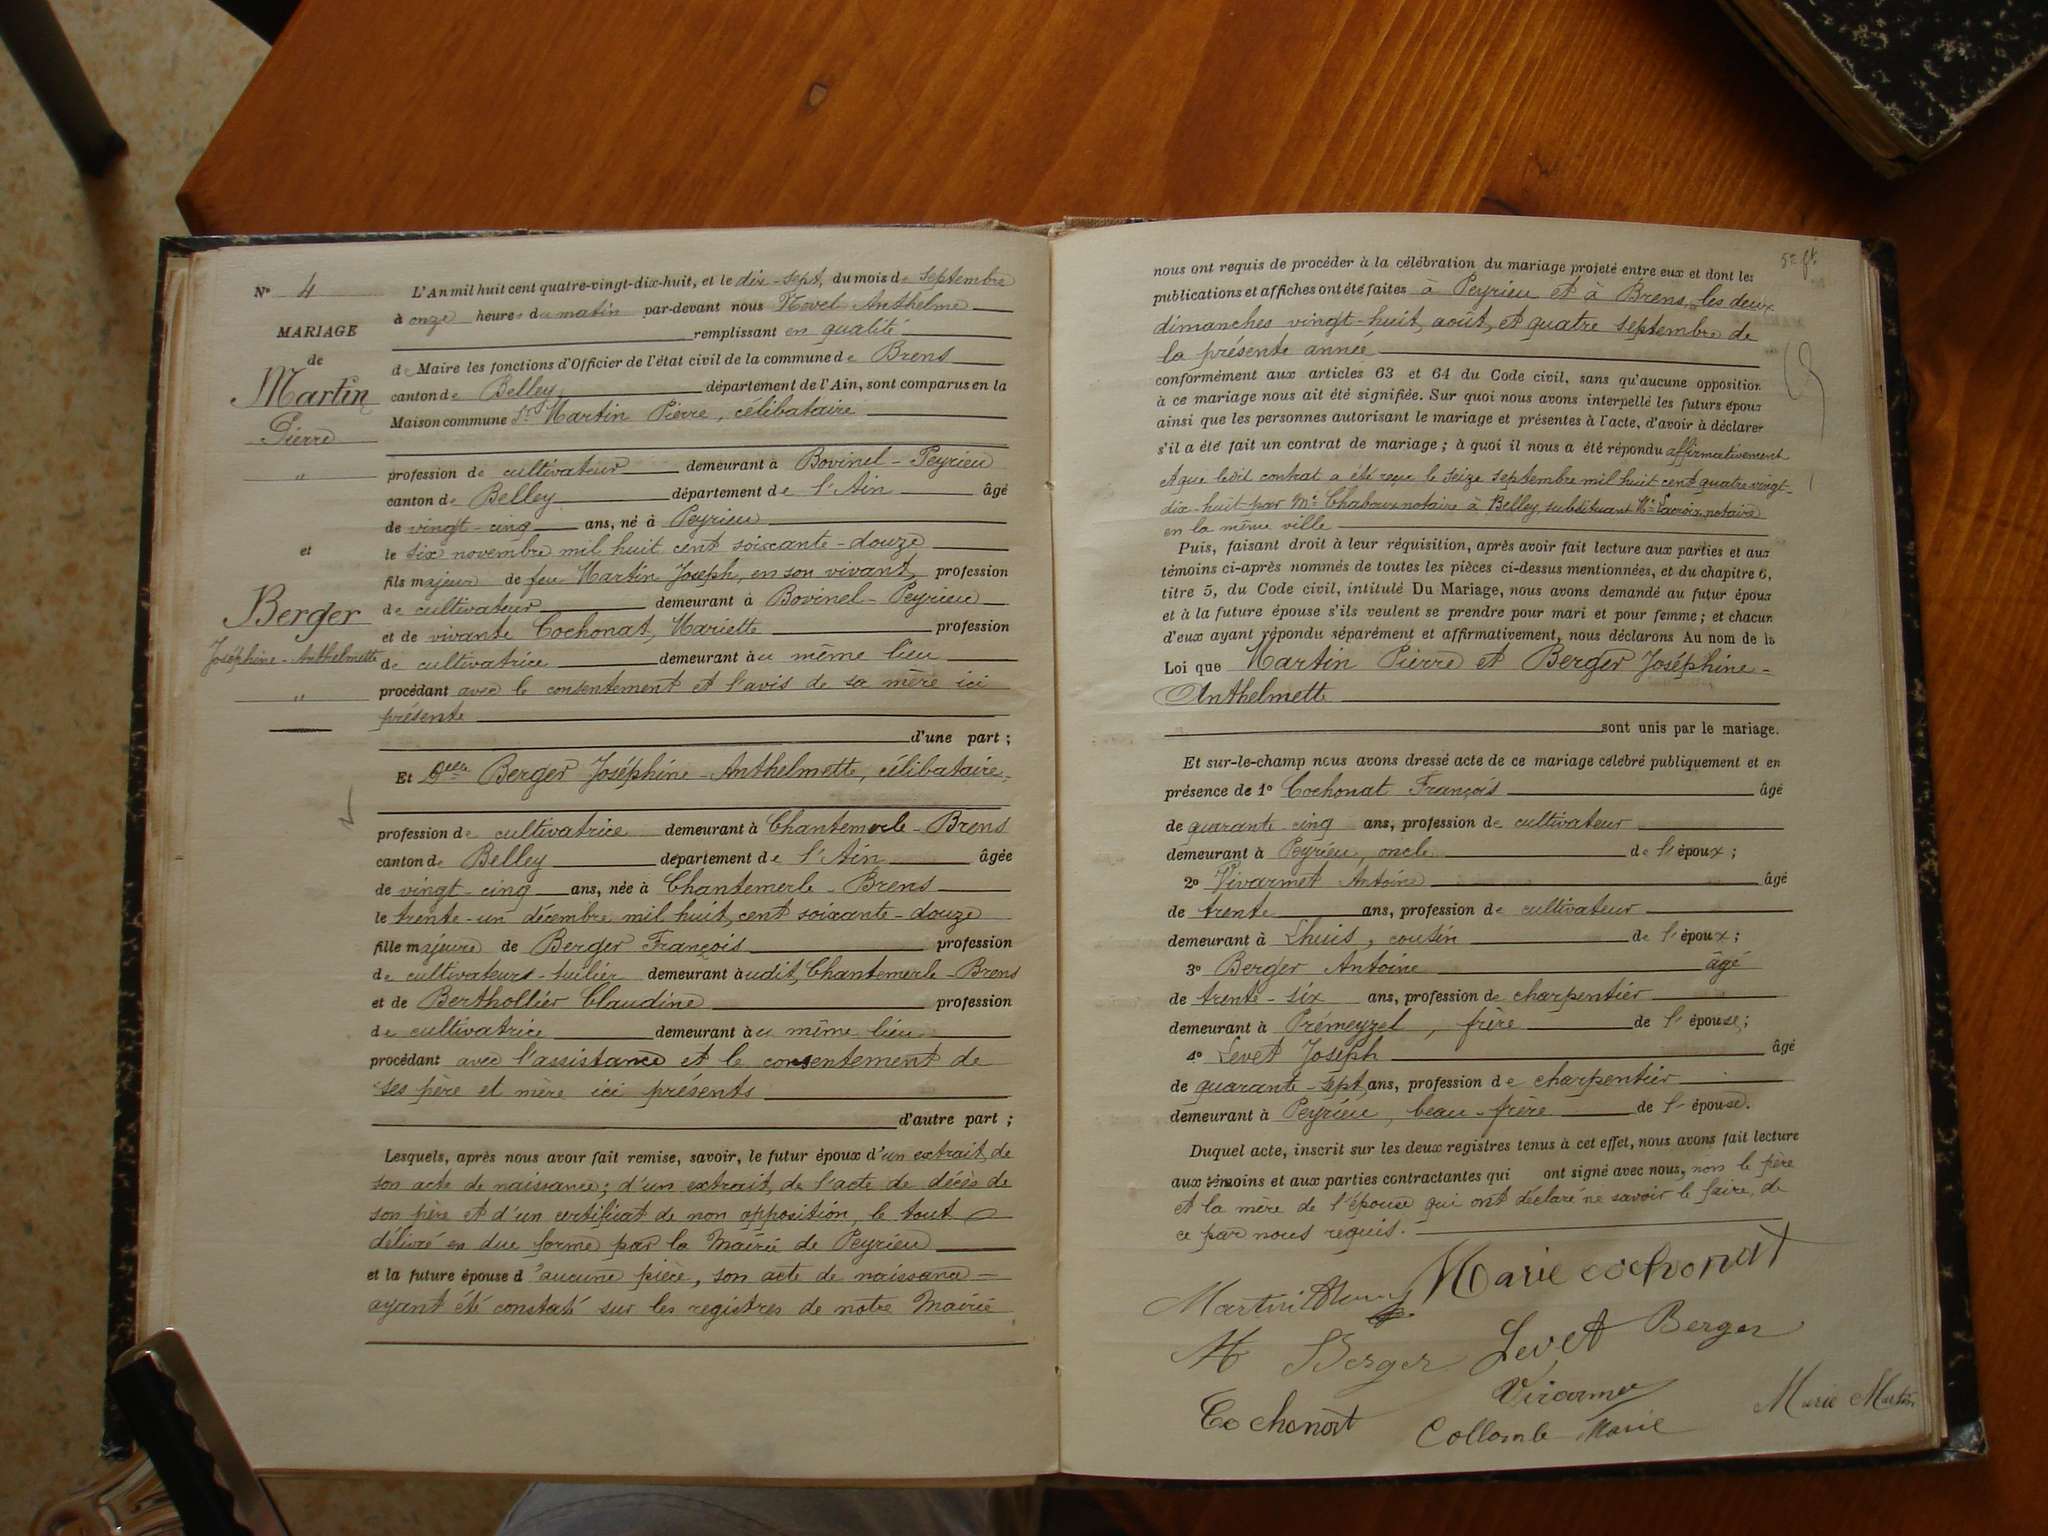 N° 4
MARIAGE
de
Martin
Pierre
"
et
Berger
Joséphine-Anthelmette
"
L'An mil huit cent quatre-vingt-dix-huit, et le dix-sept, du mois de septembre
à onze heures du matin par-devant nous Novel Anthelme
remplissant en qualité
de Maire les fonctions d'Officier de l'état civil de la commune de Brens
canton de Belley département de l'Ain, sont comparus en la
Maison commune Sr Martin Pierre, célibataire
profession de cultivateur demeurant à Bovinel-Peyrieu
canton de Belley département de l'Ain âgé
de vingt-cinq ans, né à Peyrieu
le six novembre mil huit cent soixante-douze
fils majeur de feu Martin Joseph, en son vivant, profession
de cultivateur demeurant à Bovinel-Peyrieu
et de vivante Cochonat, Mariette profession
de cultivatrice demeurant au même lieu
procédant avec le consentement et l'avis de sa mère ici
présente
d'une part ;
Et Delle Berger Joséphine-Anthelmette, célibataire,
profession de cultivatrice demeurant à Chantemerle-Brens
canton de Belley département de l'Ain âgée
de vingt-cinq ans, née à Chantemerle-Brens
le trente-un décembre mil huit cent soixante-douze
fille majeure de Berger François profession
de cultivateurs-tuilier demeurant audit Chantemerle-Brens
et de Berthollier Claudine profession
de cultivatrice demeurant au même lieu
procédant avec l'assistance et le consentement de
ses père et mère ici présents
d'autre part ;
Lesquels, après nous avoir fait remise, savoir, le futur époux d'un extrait de
son acte de naissance ; d'un extrait de l'acte de décès de
son père et d'un certificat de non opposition, le tout
délivré en due forme par la Mairie de Peyrieu
et la future épouse d'aucune pièce, son acte de naissance
ayant été constaté sur les registres de notre Mairie
nous ont requis de procéder à la célébration du mariage projeté entre eux et dont les
publications et affiches ont été faites à Peyrieu et à Brens, les deux
dimanches vingt-huit août, et quatre septembre de
la présente année
conformément aux articles 63 et 64 du Code civil, sans qu'aucune opposition
à ce mariage nous ait été signifiée. Sur quoi nous avons interpellé les futurs époux
ainsi que les personnes autorisant le mariage et présentes à l'acte, d'avoir à déclarer
s'il a été fait un contrat de mariage ; à quoi il nous a été répondu affirmativement
et que ledit contrat a été reçu le seize septembre mil huit cent quatre vingt-
dix-huit par Me Chaboux notaire à Belley, substituant Me Lacroix, notaire
en la même ville
Puis, faisant droit à leur réquisition, après avoir fait lecture aux parties et aux
témoins ci-après nommés de toutes les pièces ci-dessus mentionnées, et du chapitre 6,
titre 5, du Code civil, intitulé Du Mariage, nous avons demandé au futur époux
et à la future épouse s'ils veulent se prendre pour mari et pour femme ; et chacun
d'eux ayant répondu séparément et affirmativement, nous déclarons Au nom de la
Loi que Martin Pierre et Berger Joséphine-
Anthelmette
sont unis par le mariage.
Et sur-le-champ nous avons dressé acte de ce mariage célébré publiquement et en
présence de 1° Cochonat François âgé
de quarante-cinq ans, profession de cultivateur
demeurant à Peyrieu, oncle de l'époux ;
2° Vivarmet Antoine âgé
de trente ans, profession de cultivateur
demeurant à Lhuis, cousin de l'époux ;
3° Berger Antoine âgé
de trente-six ans, profession de charpentier
demeurant à Prémeyzel, frère de l'épouse ;
4° Levet Joseph âgé
de quarante-sept ans, profession de charpentier
demeurant à Peyrieu, beau-frère de l'épouse.
Duquel acte, inscrit sur les deux registres tenus à cet effet, nous avons fait lecture
aux témoins et aux parties contractantes qui ont signé avec nous, non le père
et la mère de l'épouse qui ont déclaré ne savoir le faire, de
ce par nous requis.
Marie cochonat
Martin
M Berger Levet Berger
Cochonat
Collomb Marie
Marie Martin